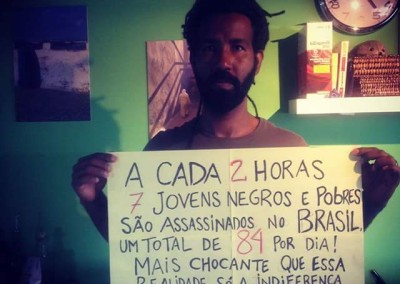 A CADA 2 HORAS
7 JOVENS NEGROS E POBRES
SÃO ASSASSINADOS NO BRASIL,
UM TOTAL DE 84 POR DIA!
MAIS CHOCANTE QUE ESSA
REALIDADE SÓ A INDIFERENÇA